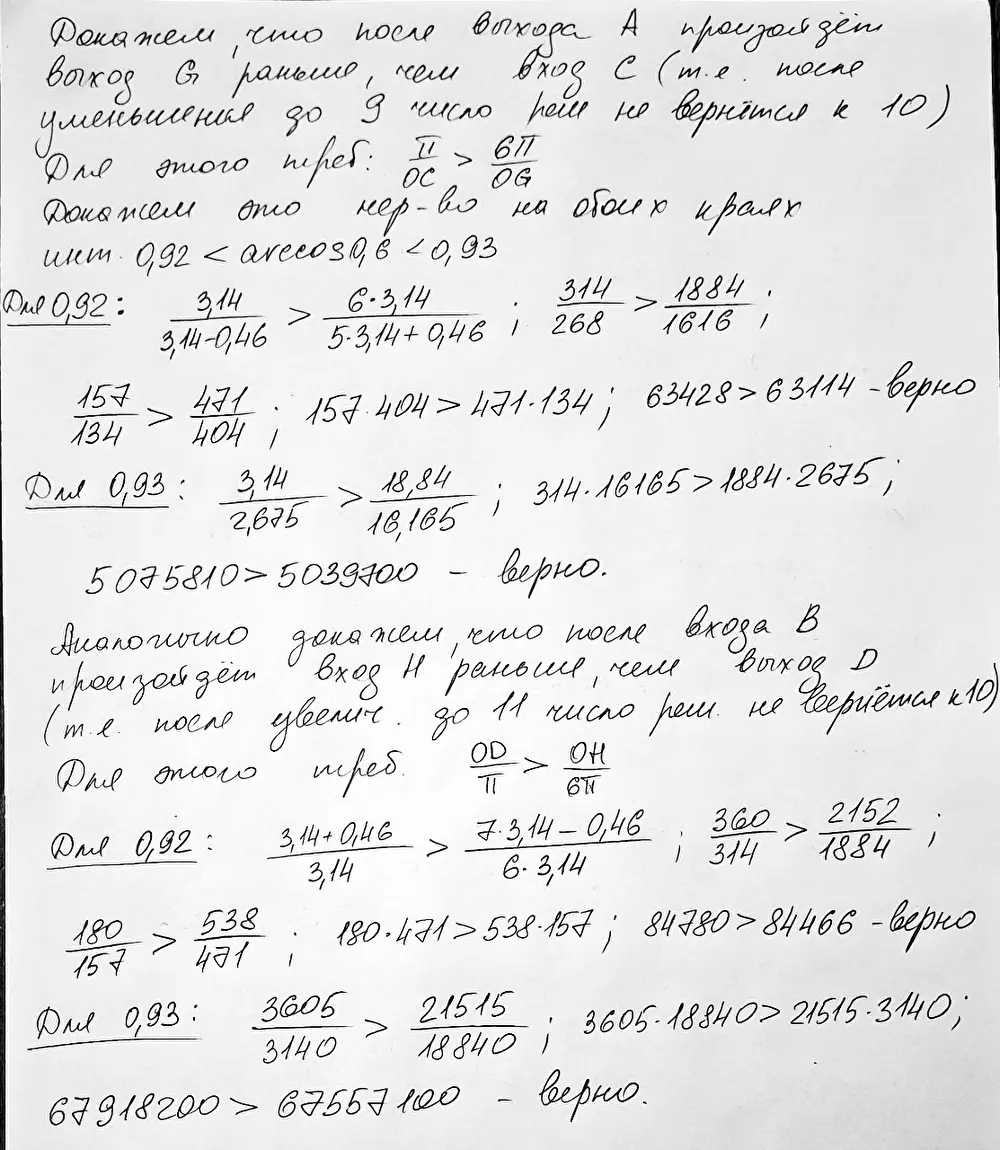 Докажем, что после выхода A произойдёт
выход G раньше, чем вход C (т.е. после
уменьшения до 9 число реш не вернётся к 10)
Для этого треб: π/OC > 6π/OG
Докажем это нер-во на обоих краях
инт. 0,92 < arccos 0,6 < 0,93
Для 0,92: 3,14/(3,14-0,46) > 6·3,14/(5·3,14+0,46) ; 314/268 > 1884/1616 ;
157/134 > 471/404 ; 157·404 > 471·134 ; 63428 > 63114 - верно
Для 0,93: 3,14/2,675 > 18,84/16,165 ; 314·16165 > 1884·2675 ;
5075810 > 5039700 - верно.
Аналогично докажем, что после входа B
произойдёт вход H раньше, чем выход D
(т.е. после увелич. до 11 число реш. не вернётся к 10)
Для этого треб. OD/π > OH/6π
Для 0,92: (3,14+0,46)/3,14 > (7·3,14-0,46)/(6·3,14) ; 360/314 > 2152/1884 ;
180/157 > 538/471 ; 180·471 > 538·157 ; 84780 > 84466 - верно
Для 0,93: 3605/3140 > 21515/18840 ; 3605·18840 > 21515·3140 ;
67918200 > 67557100 - верно.